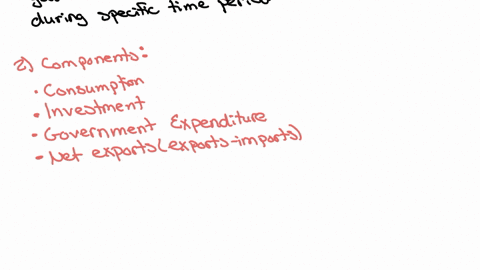 during specific time period
2) Components:
• Consumption
• Investment
• Government Expenditure
• Net exports (exports-imports)